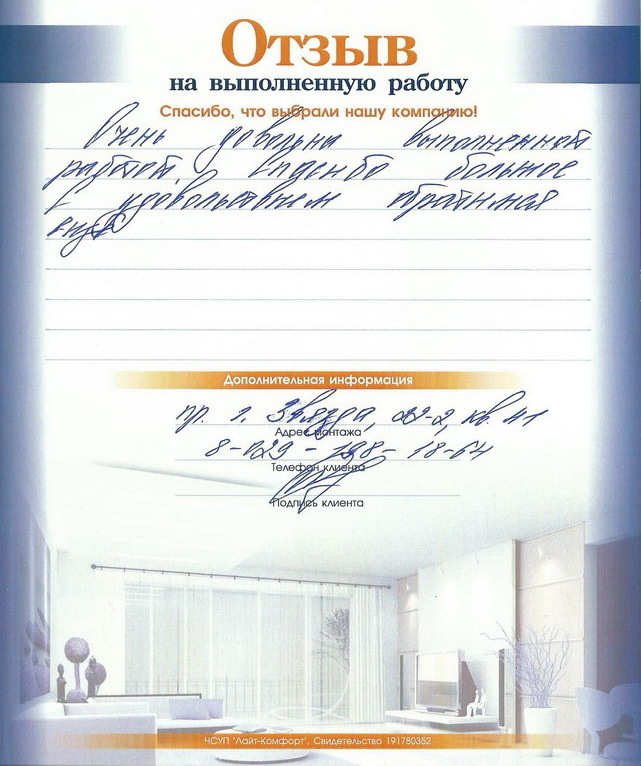 Отзыв
на выполненную работу
Спасибо, что выбрали нашу компанию!
Очень довольна выполненной
работой. Спасибо большое
С удовольствием обратимся
ещё
Дополнительная информация
пр. г. Звязда, 22-2, кв. 41
Адрес монтажа
8-029-198-18-64
Телефон клиента
Подпись клиента
ЧСУП "Лайт-Комфорт", Свидетельство 191780352